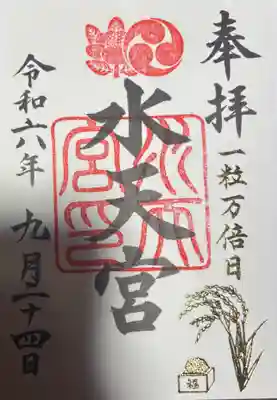 奉拝
一粒万倍日
水天宮
水天宮印
令和六年
九月二十四日
福